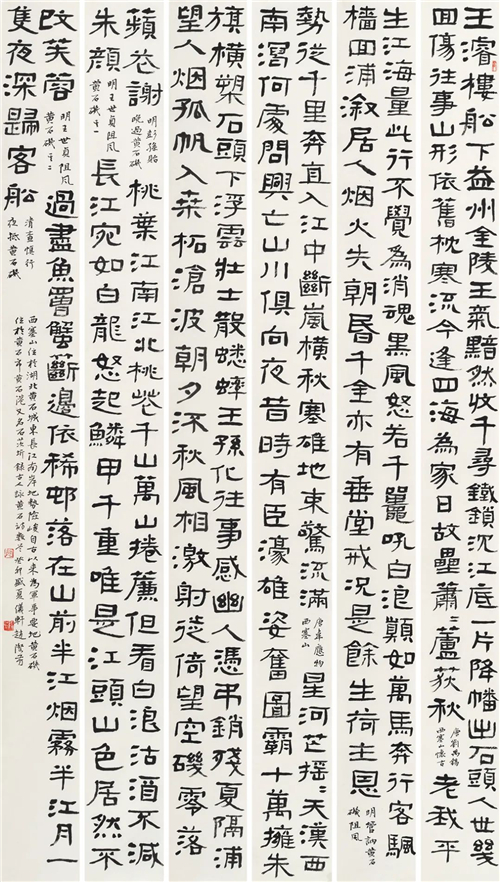 王濬樓船下益州金陵王氣黯然收千尋鐵鎖沈江底一片降幡出石頭人世幾
回傷往事山形依舊枕寒流今逢四海為家日故壘蕭﹦蘆荻秋
唐劉禹錫
西塞山懷古
老我平
生江海量此行不覺為消魂黑風怒若千鼉吼白浪顛如萬馬奔行客颿
檣回浦漵居人烟火失朝昏千金亦有垂堂戒況是餘生荷主恩
明管訥黃石
磯阻風
勢從千里奔直入江中斷嵐橫秋塞雄地束驚流滿
唐韋應物
西塞山
星河芒搖﹦天漢西
南瀉何處問興亡山川俱向夜昔時有臣濠雄姿奮圖霸十萬擁朱
旗橫槊石頭下浮雲壯士散蟋蟀王孫化往事感幽人憑弔銷殘夏隔浦
望人烟孤帆入桒柘滄波朝夕深秋風相激射徙倚望空磯零落
蘋花謝
明彭孫貽
晚過黃石磯
桃葉江南江北桃花千山萬山捲簾但看白浪沽酒不減
朱顏
明王世貞阻風
黃石磯之一
長江宛如白龍怒起鱗甲千重唯是江頭山色居然不
改芙蓉
明王世貞阻風
黃石磯之二
過盡魚罾蟹籪邊依稀邨落在山前半江烟霧半江月一
隻夜深歸客船
清查慎行
夜抵黃石磯
西塞山位於湖北黃石城東長江南岸地勢險峻自古以來為軍事要地黃石磯
位於黃石市黃石港又名石茨圻錄古人詠黃石詩數首癸卯盛夏儀軒趙潔